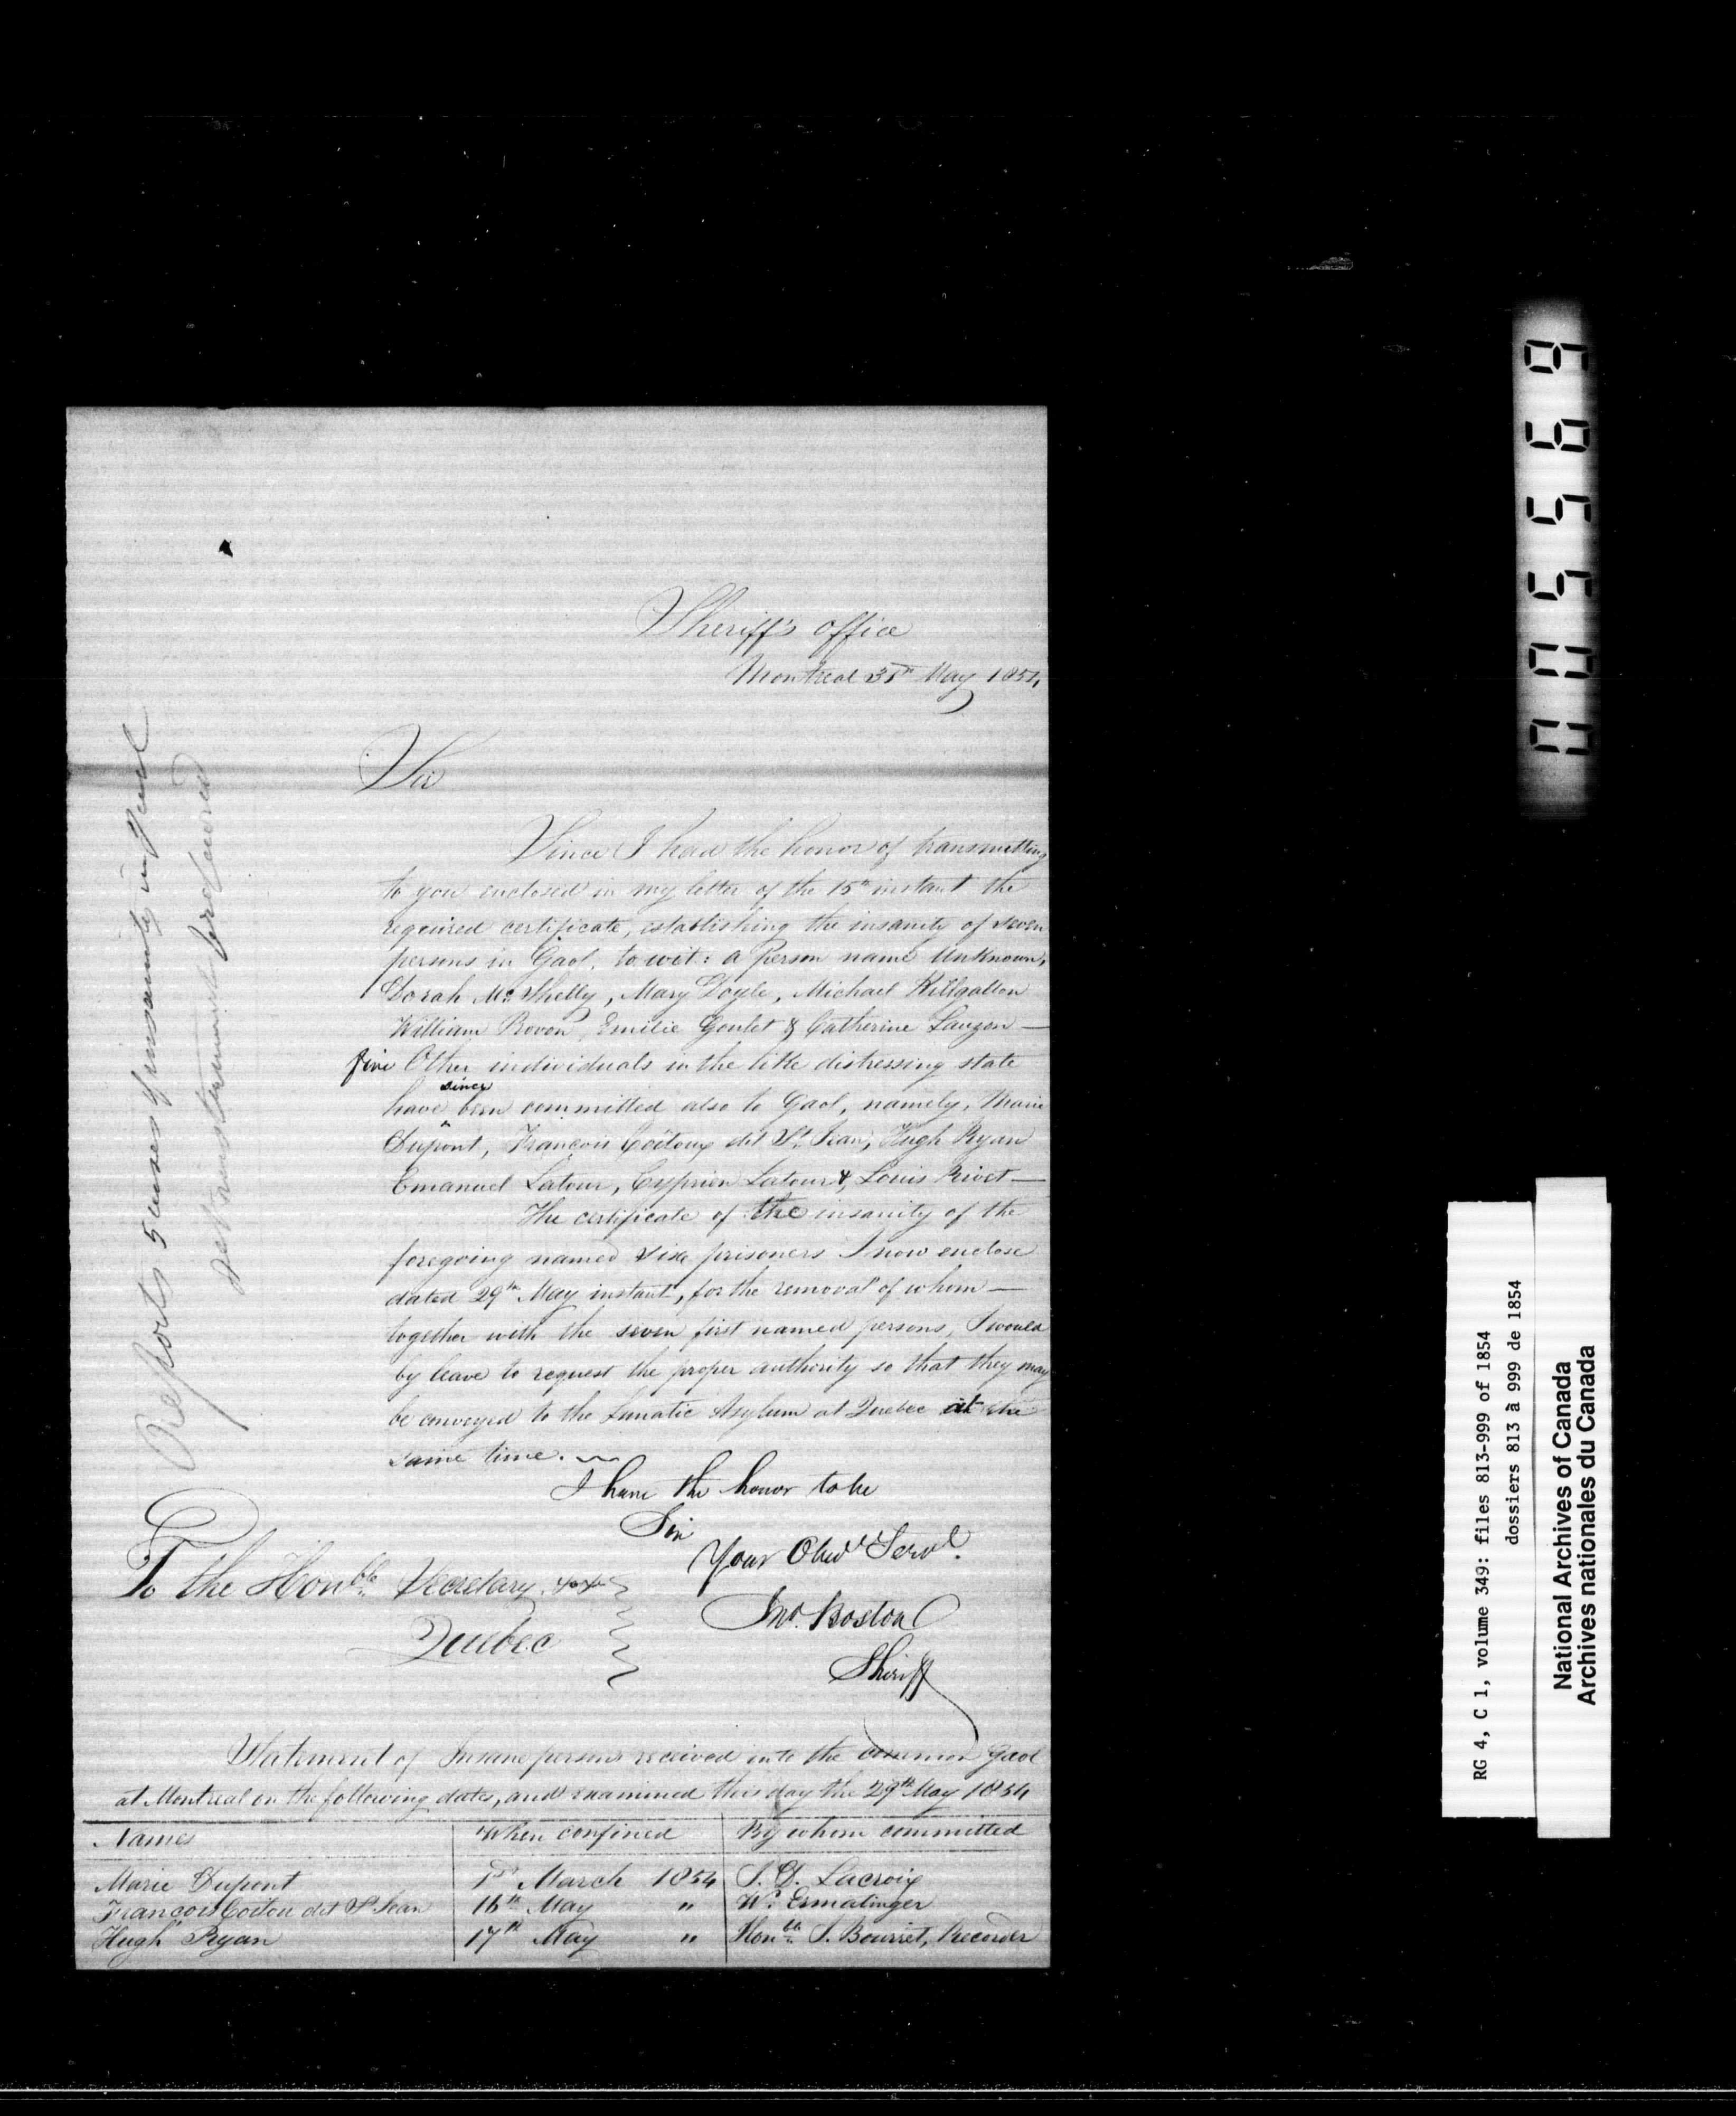 Sheriff's office
Montreal 3 May 1854
Sir
Since I had the honor of transmitting
to you enclosed in my letter of the 15th instant the
required certificate, establishing the insanity of seven
persons in Gaol, to wit: a Person name Unknown,
Dorah McShelly, Mary Doyle, Michael Killgallon
William Rovon, Emilie Goulet & Catherine Lauzon —
five Other individuals in the like distressing state
have since been committed also to Gaol, namely, Marie
Dupont, Francois Coitoux dit St Jean, Hugh Ryan
Emanuel Latour, Cyprien Latour &, Louis Rivet —
The certificate of the insanity of the
foregoing named six prisoners I now enclose
dated 29th May instant, for the removal of whom —
together with the seven first named persons, I would
by leave to request the proper authority so that they may
be conveyed to the Lunatic Asylum at Quebec at the
same time.
I have the honor to be
Sir
Your Obedt Servt.
Jno. Boston
Sheriff
To the Honble Secretary
Quebec
Reports 5 cases of insanity in Gaol
Statement of Insane persons received into the common Gaol
at Montreal on the following dates, and examined this day the 29th May 1854
Names When confined By whom committed
Marie Dupont 1st March 1854 S. D. Lacroix
Francois Coitou dit St Jean 16th May " Wm. Ermatinger
Hugh Ryan 17th May " Honble. J. Bourret, Recorder
005569
RG 4, C 1, volume 349: files 813-999 of 1854
dossiers 813 à 999 de 1854
National Archives of Canada
Archives nationales du Canada